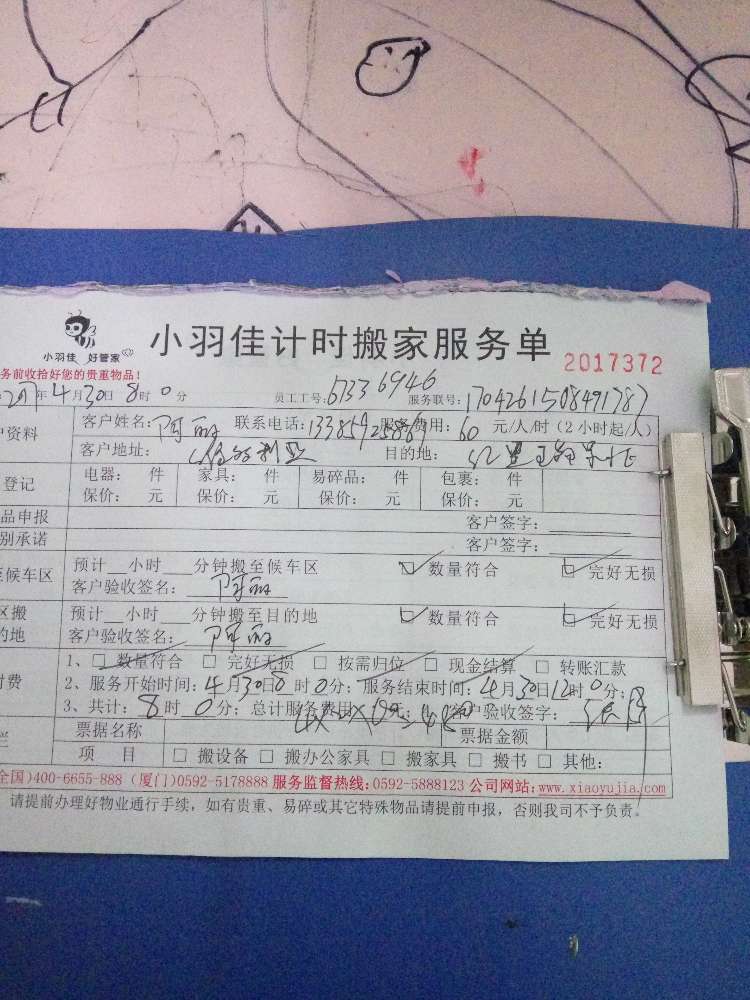 小羽佳 好管家
小羽佳计时搬家服务单
2017372
务前收拾好您的贵重物品!
年4月30日8时0分 员工工号: 服务联号:170426150849178
户资料 客户姓名:阿丽 联系电话: 服务费用:60元/人/时(2小时起/人)
客户地址: 目的地:
登记 电器: 件 家具: 件 易碎品: 件 包裹: 件
保价: 元 保价: 元 保价: 元 保价: 元
品申报 客户签字:
别承诺 客户签字:
至候车区 预计__小时__分钟搬至候车区 数量符合 完好无损
客户验收签名:阿丽
区搬 预计__小时__分钟搬至目的地 数量符合 完好无损
的地 客户验收签名:阿丽
1、□ 数量符合 □ 完好无损 □ 按需归位 □ 现金结算 □ 转账汇款
付费 2、服务开始时间:4月30日8时0分; 服务结束时间:4月30日12时0分;
3、共计:8时0分; 总计服务费用 客户验收签字:
栏 票据名称 票据金额
项 目 □ 搬设备 □ 搬办公家具 □ 搬家具 □ 搬书 □ 其他:
全国)400-6655-888 (厦门)0592-5178888 服务监督热线:0592-5888123 公司网站:www.xiaoyujia.com
请提前办理好物业通行手续,如有贵重、易碎或其它特殊物品请提前申报,否则我司不予负责。